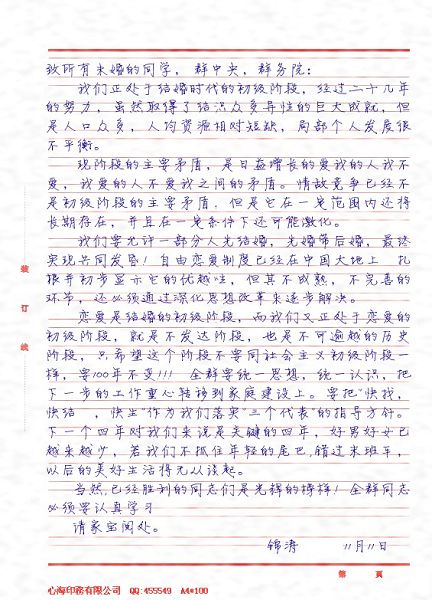 致所有未婚的同学，群中央，群务院：
我们正处于结婚时代的初级阶段，经过二十几年
的努力，虽然取得了结识众多异性的巨大成就，但
是人口众多，人均资源相对短缺，局部个人发展很
不平衡。
现阶段的主要矛盾，是日益增长的爱我的人我不
爱，我爱的人不爱我之间的矛盾。情敌竞争已经不
是初级阶段的主要矛盾，但是它在一定范围内还将
长期存在，并且在一定条件下还可能激化。
我们要允许一部分人先结婚，先婚带后婚，最终
实现共同发昏！自由恋爱制度已经在中国大地上 扎
根并初步显示它的优越性，但其不成熟，不完善的
环节，还必须通过深化思想改革来逐步解决。
恋爱是结婚的初级阶段，而我们又正处于恋爱的
初级阶段，就是不发达阶段，也是不可逾越的历史
阶段，只希望这个阶段不要同社会主义初级阶段一
样，要100年不变!!! 全群要统一思想，统一认识，把
下一步的工作重心转移到家庭建设上。要把“快找，
快结 ，快生”作为我们落实“三个代表”的指导方针。
下一个四年对我们来说是关键的四年，好男好女已
越来越少，若我们不抓住年轻的尾巴，错过末班车，
以后的美好生活将无从谈起。
当然，已经胜利的同志们是光辉的榜样！全群同志
必须要认真学习
请家宝阅处。
锦涛 11月11日
装
订
线
第 页
心海印务有限公司 QQ:455549 A4*100